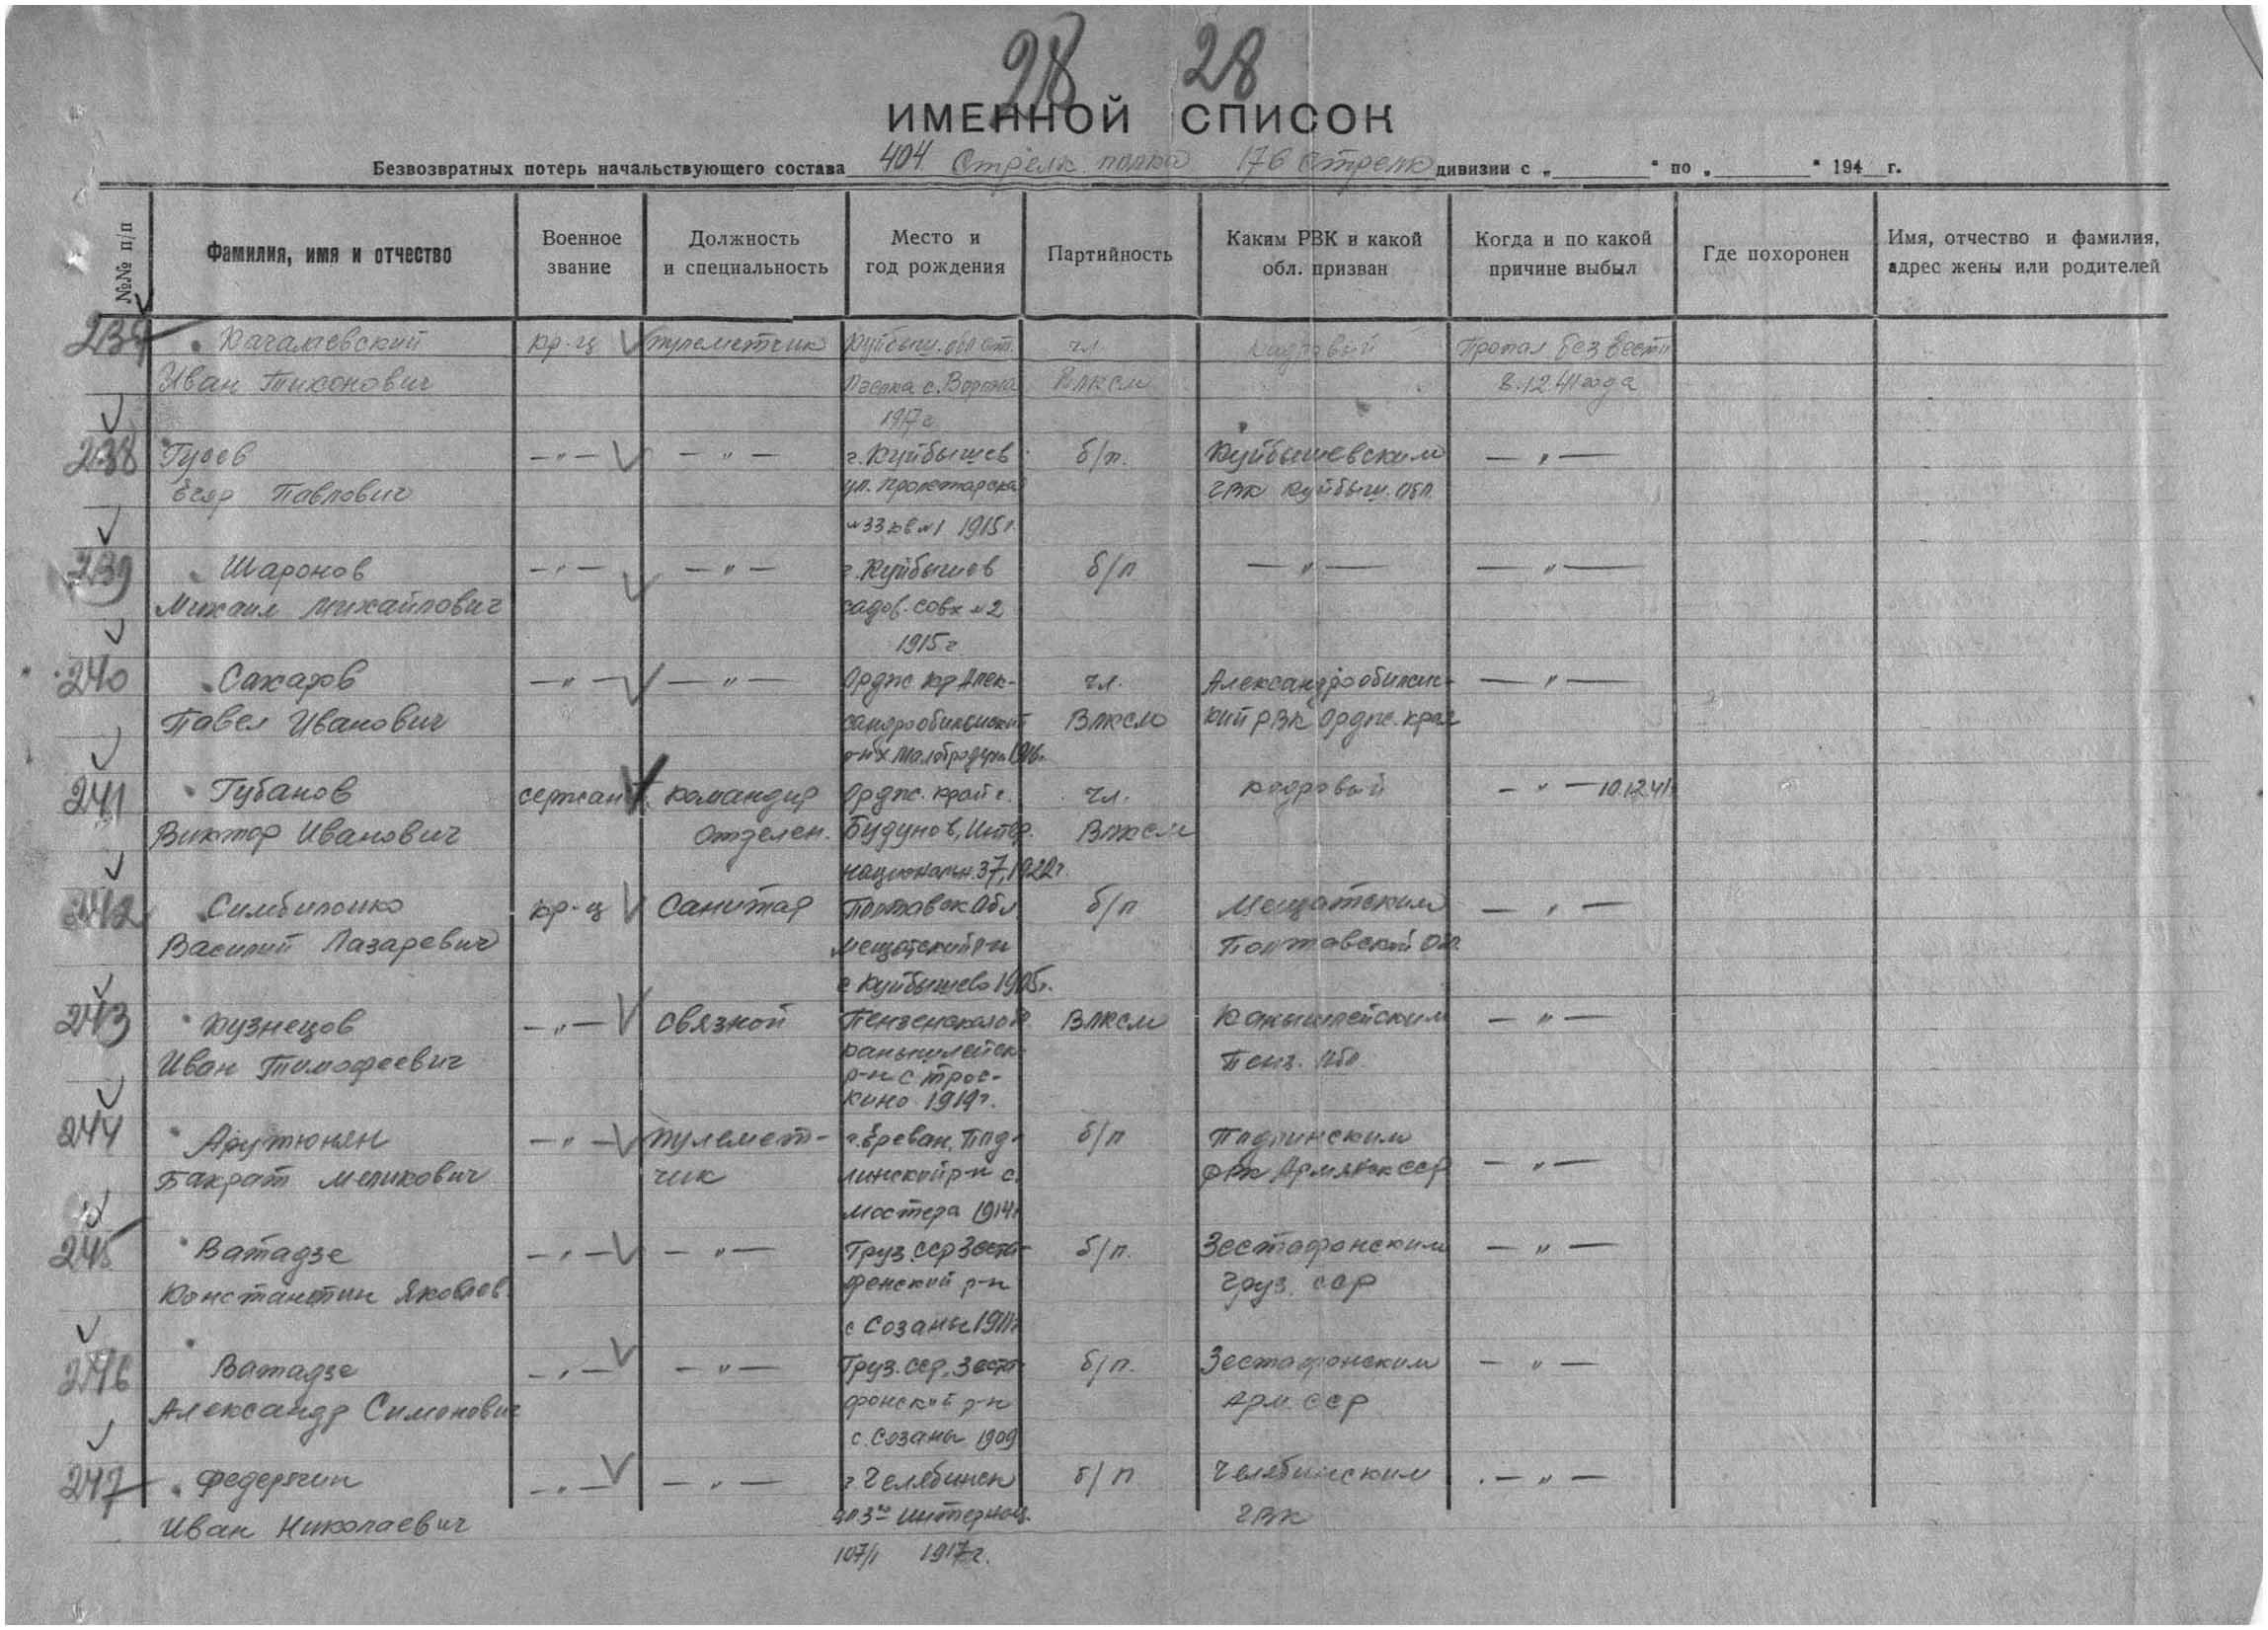 28 28
ИМЕННОЙ СПИСОК
Безвозвратных потерь начальствующего состава 404 Стрелк. полка 176 Стрелк дивизии с „ " по „ " 194 г.
№№ п/п
Фамилия, имя и отчество
Военное звание
Должность и специальность
Место и год рождения
Партийность
Каким РВК и какой обл. призван
Когда и по какой причине выбыл
Где похоронен
Имя, отчество и фамилия, адрес жены или родителей
кр-ц пулеметчик Куйбыш. обл. чл. кадровый Пропал без вести
Иван Тихонович с. Ворона Влксм 8.12.41 года
1917 г
238 Гусев — " — — " — г. Куйбышев б/п. Куйбышевским — " —
Егор Павлович ул. Пролетарская ГВК Куйбыш. обл.
№33 кв №1 1915 г.
239 Шаронов — " — — " — г. Куйбышев б/п — " — — " —
Михаил Михайлович садов. совх №2
1915 г
240 Сахаров — " — — " — Ордж кр Алек- чл. Александрообильнс- — " —
Павел Иванович сандрообильнский Влксм кий РВК Ордж. края
р-н х
241 Губанов сержант командир Ордж. край г. чл. кадровый — " — 10.12.41
Виктор Иванович отделен. Интер- Влксм
национальн. 37, 1922 г.
242 кр-ц Санитар Полтавск Обл б/п — " —
Василий Лазаревич р-н Полтавской Обл.
с Куйбышево 1905 г.
243 Кузнецов — " — связной Пензенская об Влксм Камышлейским — " —
Иван Тимофеевич Камышлейск. Пенз. обл.
р-н с. Трос-
кино 1919 г.
244 Арутюнян — " — пулемет- г. Ереван, б/п
Бакрат Меликович чик р-н с. РВК Армянск ССР — " —
Мастера 1914 г
245 Ватадзе — " — — " — Груз. ССР Зеста- б/п. Зестафонским — " —
Константин Яковлев. фонский р-н Груз. ССР
с Созаны
246 Ватадзе — " — — " — Груз. ССР. Зеста- б/п. Зестафонским — " —
Александр Симонович фонский р-н Арм. ССР
с. Созаны 1909
247 Федерягин — " — — " — г Челябинск б/п Челябинским — " —
Иван Николаевич 3го Интернац. ГВК
107/1 1917 г.